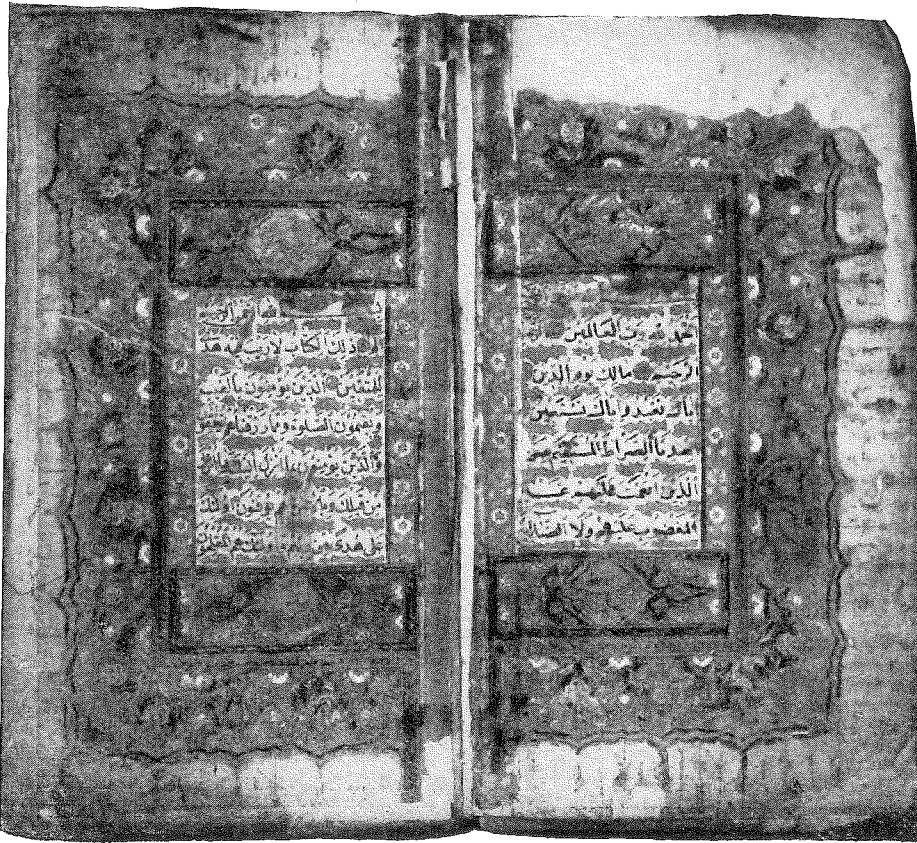 حمد لله رب العالمين
الرحيم مالك يوم الدين
اياك نعبد و اياك نستعين
اهدنا الصراط المستقيم صر
الذين انعمت عليهم غير
المغضوب عليهم ولا الضا
الرحيم
ذلك الكتاب لا ريب فيه هدى
للمتقين الذين يؤمنون بالغيب
ويقيمون الصلوة ومما رزقناهم ينفقون
والذين يؤمنون بما انزل اليك وما
من قبلك يوقنون اولئك
على هدى من واولئك هم المفلحون